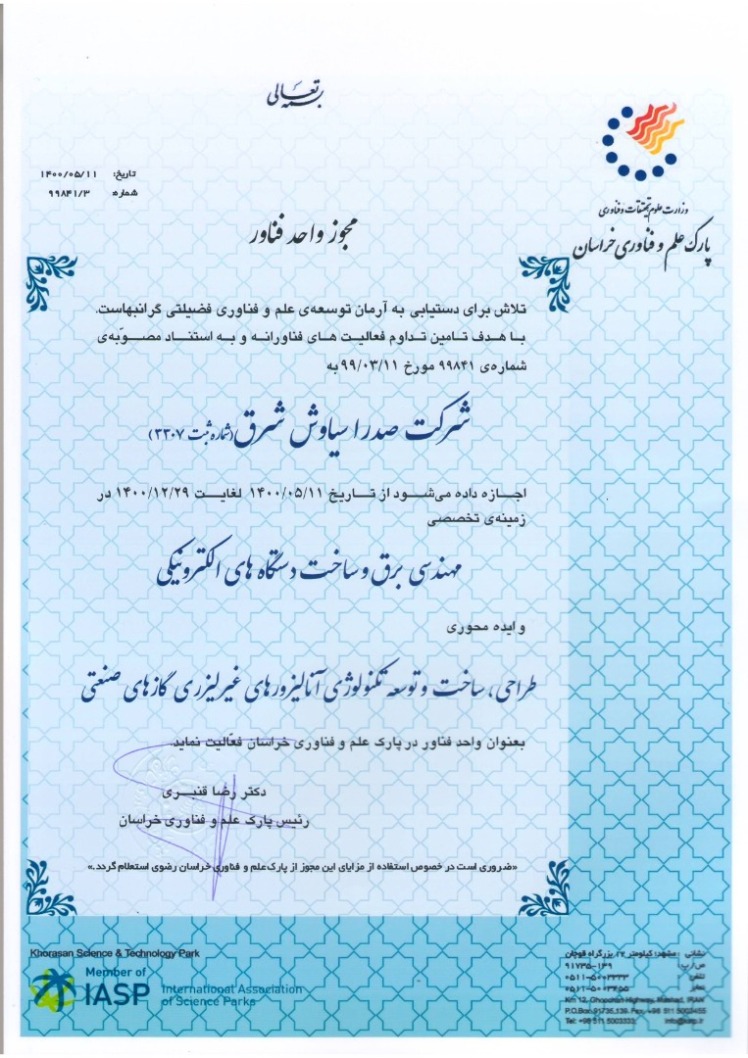 بسمه تعالی
تاریخ: ۱۴۰۰/۰۵/۱۱
شماره: ۹۹۸۴۱/۳
وزارت علوم تحقیقات و فناوری
پارک علم و فناوری خراسان
مجوز واحد فناور
تلاش برای دستیابی به آرمان توسعه‌ی علم و فناوری فضیلتی گرانبهاست.
با هدف تامین تداوم فعالیت های فناورانه و به استناد مصوّبه‌ی
شماره‌ی ۹۹۸۴۱ مورخ ۹۹/۰۳/۱۱ به
شرکت صدرا سیاوش شرق (شماره ثبت ۳۳۰۷)
اجازه داده می‌شود از تاریخ ۱۴۰۰/۰۵/۱۱ لغایت ۱۴۰۰/۱۲/۲۹ در
زمینه‌ی تخصصی
مهندسی برق و ساخت دستگاه های الکترونیکی
و ایده محوری
طراحی، ساخت و توسعه تکنولوژی آنالیزورهای غیرلیزری گازهای صنعتی
بعنوان واحد فناور در پارک علم و فناوری خراسان فعّالیت نماید.
دکتر رضا قنبری
رئیس پارک علم و فناوری خراسان
«ضروری است در خصوص استفاده از مزایای این مجوز از پارک علم و فناوری خراسان رضوی استعلام گردد.»
Khorasan Science & Technology Park
Member of
IASP International Association
of Science Parks
نشانی: مشهد، کیلومتر ۱۲ بزرگراه قوچان
ص/پ: ۹۱۷۳۵-۱۳۹
تلفن: ۰۵۱۱-۵۰۰۳۳۳۳
نمابر:
Km 12, Ghoochan Highway, Mashad, IRAN
P.O.Box: 91735,139. Fax: +98 511 5003455
Tel: +98 511 5003333